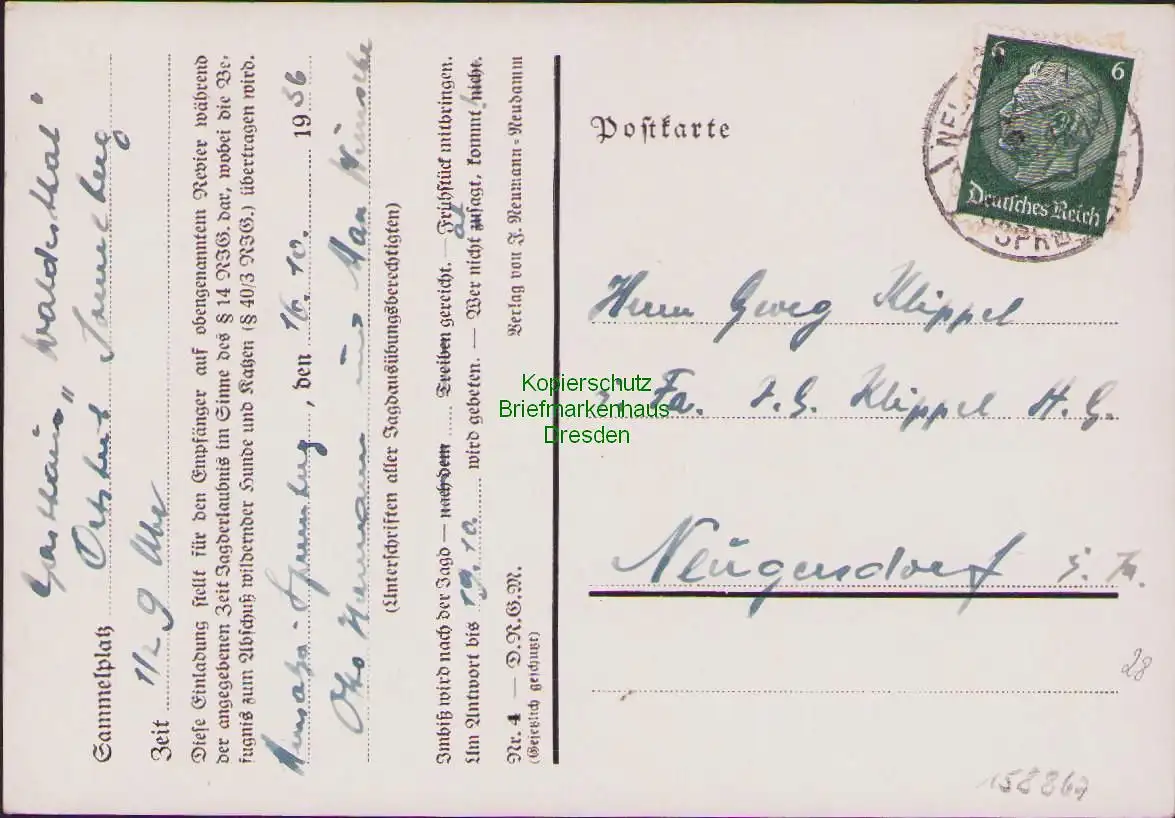 Gasthaus „Waldesthal"
Sammelplatz Ortsteil Sonneberg
Zeit 1/2 9 Uhr
Diese Einladung stellt für den Empfänger auf obengenanntem Revier während
der angegebenen Zeit Jagderlaubnis im Sinne des § 14 RJG. dar, wobei die Be-
fugnis zum Abschuß wildernder Hunde und Katzen (§ 40/3 RJG.) übertragen wird.
Neusalza-Spremberg, den 16. 10. 1936
Otto Hermann und Max Wünsche
(Unterschriften aller Jagdausübungsberechtigten)
Imbiß wird nach der Jagd — nach dem .... Treiben gereicht. — Frühstück mitbringen.
Um Antwort bis 19. 10. wird gebeten. — Wer nicht absagt, kommt nicht.
Nr. 4 — D.R.G.M. Verlag von J. Neumann-Neudamm
(Gesetzlich geschützt)
Postkarte
6 6
Deutsches Reich
SPRE
Herrn Georg Klippel
i. Fa. J. G. Klippel A. G.
Neugersdorf i. Sa.
28
158867
Kopierschutz
Briefmarkenhaus
Dresden